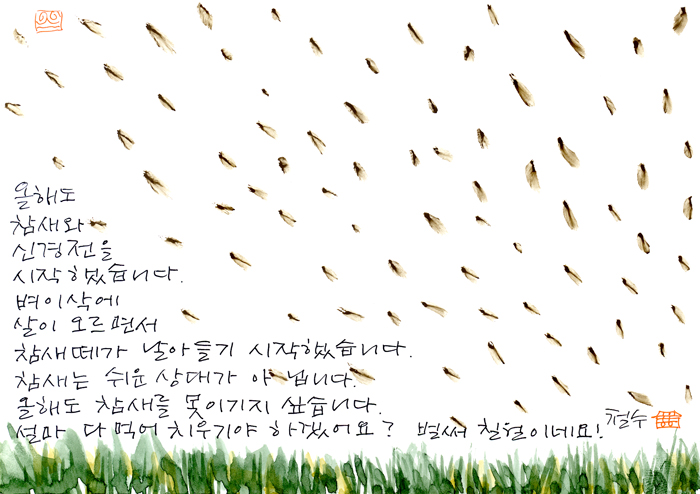 올해도
참새와
신경전을
시작했습니다.
벼이삭에
살이 오르면서
참새떼가 날아들기 시작했습니다.
참새는 쉬운 상대가 아닙니다.
올해도 참새를 못이기지 싶습니다.
설마 다 먹어치우기야 하겠어요? 벌써 칠월이네요!
철수